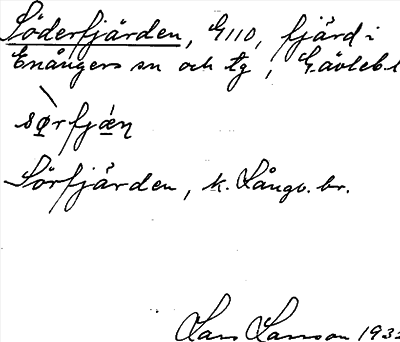 Söderfjärden, G110, fjärd i
Enångers sn och tg, Gävlebl
sørfjæṇ
Sörfjärden, k. Långv. br.
Lars Larsson 193